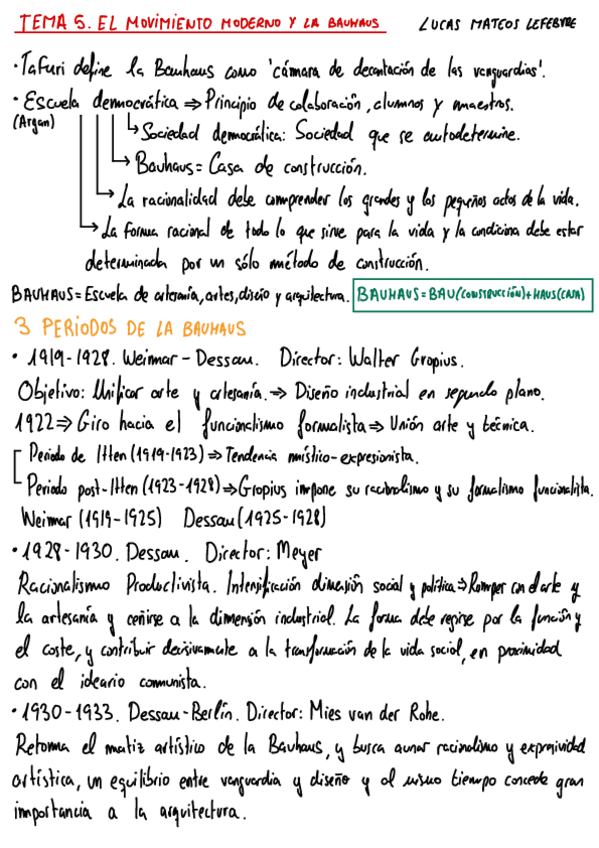 TEMA 5. EL MOVIMIENTO MODERNO Y LA BAUHAUS LUCAS MATEOS LEFEBVRE
· Tafuri define la Bauhaus como 'cámara de decantación de las vanguardias'.
· Escuela democrática ⇒ Principio de colaboración, alumnos y maestros.
(Argan)
↳ Sociedad democrática: Sociedad que se autodetermine.
↳ Bauhaus = Casa de construcción.
↳ La racionalidad debe comprender los grandes y los pequeños actos de la vida.
↳ La forma racional de todo lo que sirve para la vida y la condiciona debe estar
determinada por un sólo método de construcción.
BAUHAUS = Escuela de artesanía, artes, diseño y arquitectura. BAUHAUS = BAU (CONSTRUCCIÓN) + HAUS (CASA)
3 PERIODOS DE LA BAUHAUS
· 1919-1928. Weimar - Dessau. Director: Walter Gropius.
Objetivo: Unificar arte y artesanía. ⇒ Diseño industrial en segundo plano.
1922 ⇒ Giro hacia el funcionalismo formalista ⇒ Unión arte y técnica.
Periodo de Itten (1919-1923) ⇒ Tendencia místico-expresionista.
Periodo post-Itten (1923-1928) ⇒ Gropius impone su racionalismo y su formalismo funcionalista.
Weimar (1919-1925) Dessau (1925-1928)
· 1928-1930. Dessau. Director: Meyer
Racionalismo Productivista. Intensificación dimensión social y política ⇒ Romper con el arte y
la artesanía y ceñirse a la dimensión industrial. La forma debe regirse por la función y
el coste, y contribuir decisivamente a la transformación de la vida social, en proximidad
con el ideario comunista.
· 1930-1933. Dessau-Berlín. Director: Mies van der Rohe.
Retoma el matiz artístico de la Bauhaus, y busca aunar racionalismo y expresividad
artística, un equilibrio entre vanguardia y diseño y al mismo tiempo concede gran
importancia a la arquitectura.